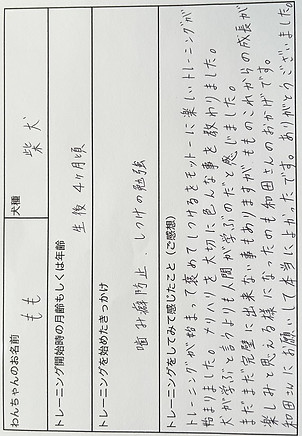 わんちゃんのお名前
もも
犬種
柴犬
トレーニング開始時の月齢もしくは年齢
生後4ヶ月頃
トレーニングを始めたきっかけ
噛み癖防止、しつけの勉強
トレーニングをしてみて感じたこと（ご感想）
トレーニングが始まって褒めてしつけるをモットーに楽しいトレーニングが
始まりました。メリハリを大切に色んな事を教わりました。
犬が学ぶと言うよりも人間が学ぶのだと感じました。
まだまだ完璧に出来ない事もありますがももこれからの成長が
楽しみと思える様になったのも和田さんのおかげです。
和田さんにお願いして本当によかったです。ありがとうございました。